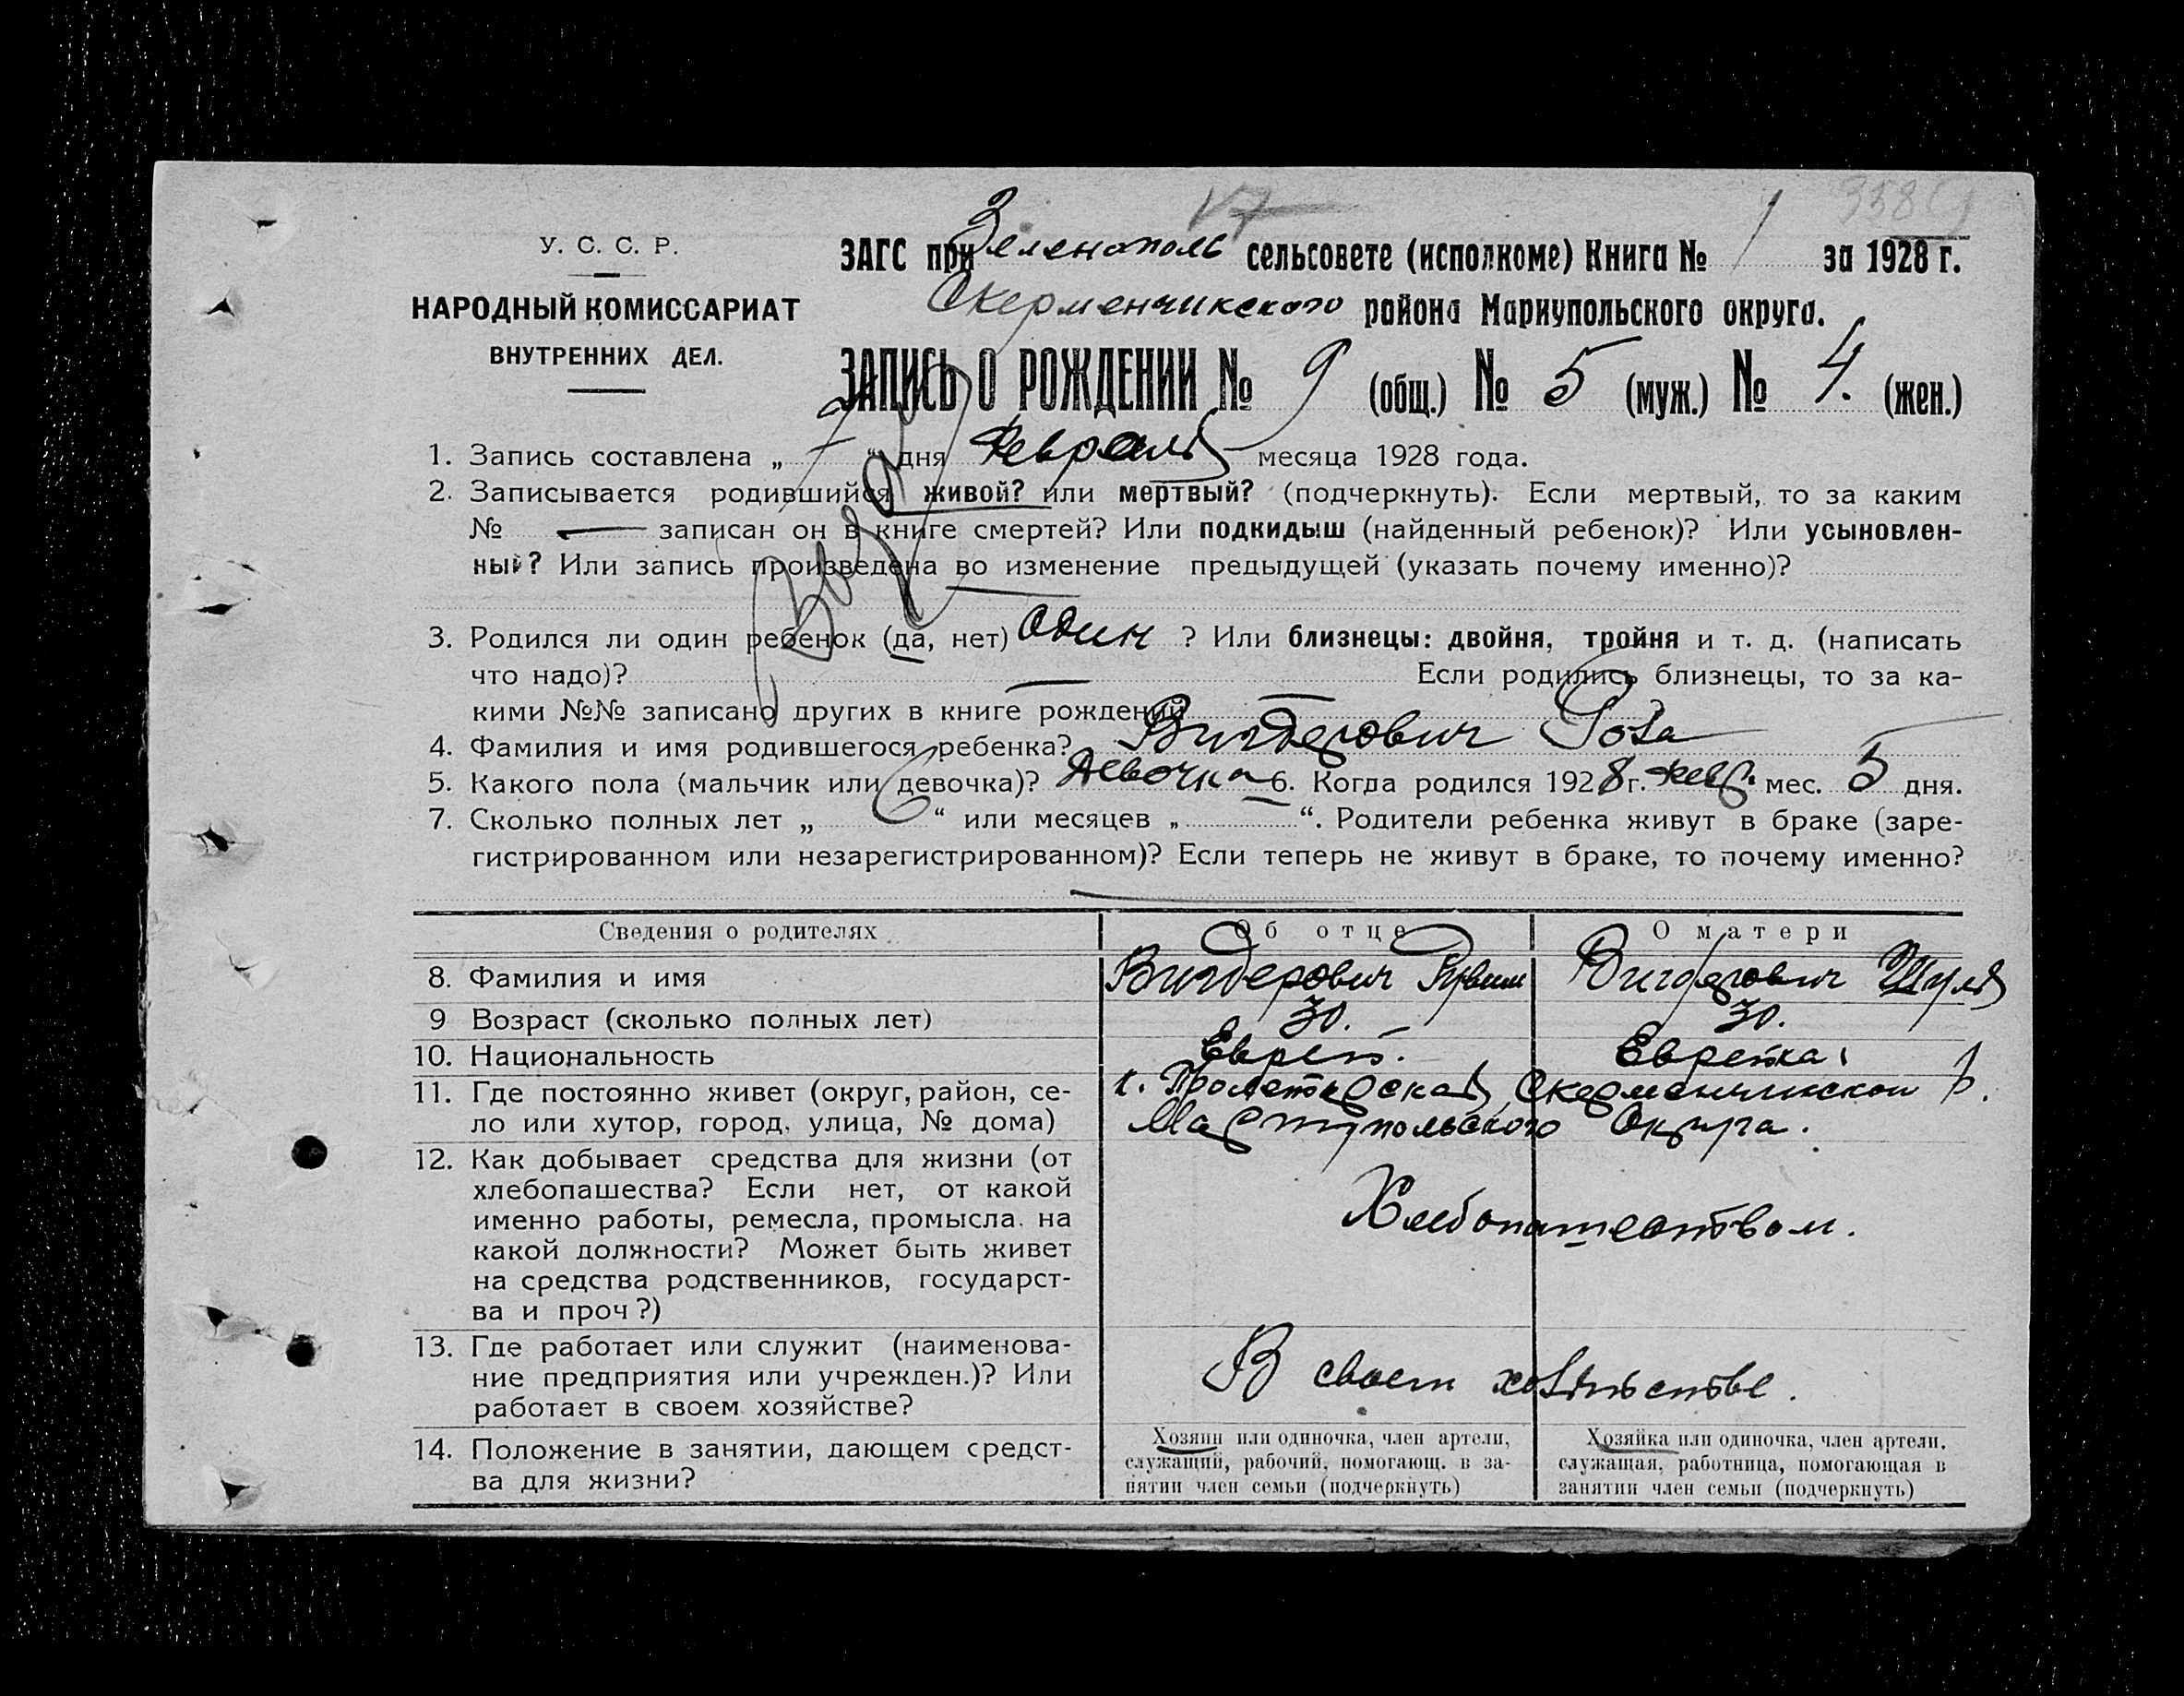 У. С. С. Р.
НАРОДНЫЙ КОМИССАРИАТ
ВНУТРЕННИХ ДЕЛ.
ЗАГС при Зеленополь сельсовете (исполкоме) Книга № 1 за 1928 г.
Скерменчикского района Мариупольского округа.
ЗАПИСЬ О РОЖДЕНИИ № 9 (общ.) № 5 (муж.) № 4. (жен.)
1. Запись составлена „ 7 “ дня Февраля месяца 1928 года.
2. Записывается родившийся живой? или мертвый? (подчеркнуть). Если мертвый, то за каким
№ — записан он в книге смертей? Или подкидыш (найденный ребенок)? Или усыновлен-
ный? Или запись произведена во изменение предыдущей (указать почему именно)?
3. Родился ли один ребенок (да, нет) один ? Или близнецы: двойня, тройня и т. д. (написать
что надо)? — Если родились близнецы, то за ка-
кими №№ записано других в книге рождений —
4. Фамилия и имя родившегося ребенка? Вигдерович Роза
5. Какого пола (мальчик или девочка)? Девочка 6. Когда родился 1928 г. февр. мес. 5 дня.
7. Сколько полных лет „ “ или месяцев „ “. Родители ребенка живут в браке (заре-
гистрированном или незарегистрированном)? Если теперь не живут в браке, то почему именно?
Сведения о родителях Об отце О матери
8. Фамилия и имя Вигдерович Рувим Вигдерович Шуля
9 Возраст (сколько полных лет) 30. 30.
10. Национальность Еврей. Еврейка.
11. Где постоянно живет (округ, район, се-
ло или хутор, город, улица, № дома)
к. Пролетарская Скерменчикской р.
Мариупольского Округа.
12. Как добывает средства для жизни (от
хлебопашества? Если нет, от какой
именно работы, ремесла, промысла, на
какой должности? Может быть живет
на средства родственников, государст-
ва и проч?)
Хлебопашеством.
13. Где работает или служит (наименова-
ние предприятия или учрежден.)? Или
работает в своем хозяйстве?
В своем хозяйстве.
14. Положение в занятии, дающем средст-
ва для жизни?
Хозяин или одиночка, член артели,
служащий, рабочий, помогающ. в за-
нятии член семьи (подчеркнуть)
Хозяйка или одиночка, член артели,
служащая, работница, помогающая в
занятии член семьи (подчеркнуть)